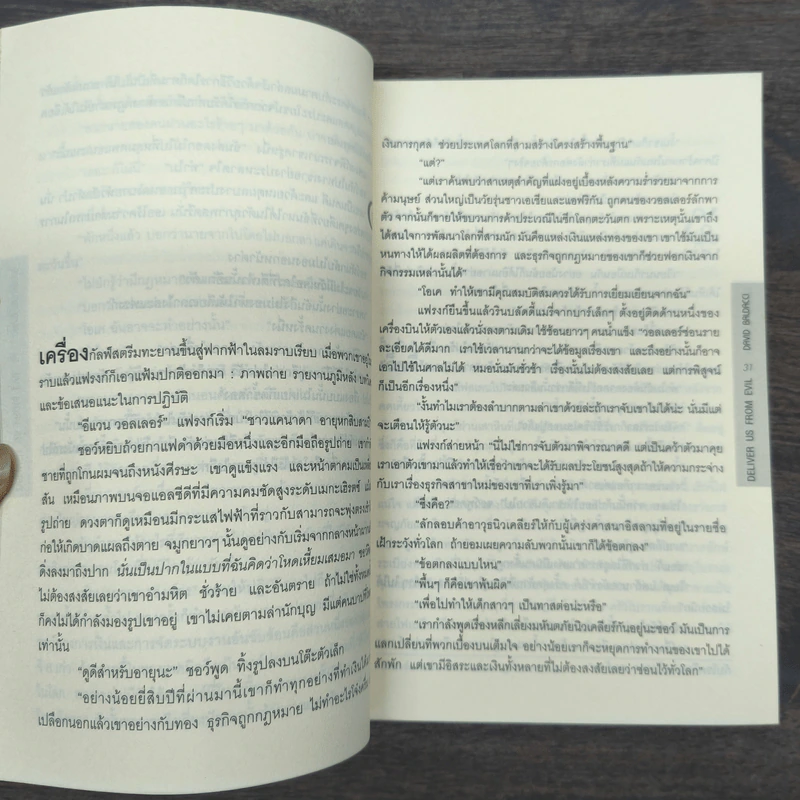 เครื่องกัลฟ์สตรีมทะยานขึ้นสู่ฟากฟ้าในลมราบเรียบ เมื่อพวกเขาอยู่ใน
ราบแล้วแฟรงก์ก็เอาแฟ้มปกติดออกมา : ภาพถ่าย รายงานภูมิหลัง
และข้อเสนอแนะในการปฏิบัติ
“อีแวน วอลเลอร์” แฟรงก์เริ่ม “ชาวแคนาดา อายุหกสิบสาม
ชอว์หยิบถ้วยกาแฟดำด้วยมือหนึ่งและอีกมือถือรูปถ่าย
ชายที่ถูกโกนผมจนถึงหนังศีรษะ เขาดูแข็งแรง และหน้าตาคมเป็น
สัน เหมือนภาพบนจอแอลซีดีที่มีความคมชัดสูงระดับเมกะเฮิรตซ์
รูปถ่าย ดวงตาก็ดูเหมือนมีกระแสไฟฟ้าที่ราวกับสามารถจะพุ่งตรง
ก่อให้เกิดบาดแผลถึงตาย จมูกยาวๆ นั้นดูอย่างกับเริ่มจากกลางหน้าผาก
ดิ่งลงมาถึงปาก นั่นเป็นปากในแบบที่ฉันคิดว่าโหดเหี้ยมเสมอมา
ไม่ต้องสงสัยเลยว่าเขาอำมหิต ชั่วร้าย และอันตราย ถ้าไม่ใช่ทั้งหมด
ก็คงไม่ได้กำลังมองรูปเขาอยู่ เขาไม่เคยตามล่านักบุญ มีแต่คนบาป
เท่านั้น
“ดูดีสำหรับอายุนะ” ชอว์พูด ทิ้งรูปลงบนโต๊ะตัวเล็ก
“อย่างน้อยยี่สิบปีที่ผ่านมานี้เขาก็ทำทุกอย่างที่ทำเงินได้
เปลือกนอกแล้วเขาอย่างกับทอง ธุรกิจถูกกฎหมาย ไม่ทำอะไรโจ่งครึ่ม
เงินการกุศล ช่วยประเทศโลกที่สามสร้างโครงสร้างพื้นฐาน”
“แต่?”
“แต่เราค้นพบว่าสาเหตุสำคัญที่แฝงอยู่เบื้องหลังความร่ำรวยมาจากการ
ค้ามนุษย์ ส่วนใหญ่เป็นวัยรุ่นชาวเอเชียและแอฟริกัน ถูกคนของวอลเลอร์ลักพา
ตัว จากนั้นก็ขายให้ขบวนการค้าประเวณีในซีกโลกตะวันตก เพราะเหตุนั้นเขาถึง
ได้สนใจการพัฒนาโลกที่สามนัก มันคือแหล่งเงินแหล่งทองของเขา เขาใช้มันเป็น
หนทางให้ได้ผลผลิตที่ต้องการ และธุรกิจถูกกฎหมายของเขาก็ช่วยฟอกเงินจาก
กิจกรรมเหล่านั้นได้”
“โอเค ทำให้เขามีคุณสมบัติสมควรได้รับการเยี่ยมเยียนจากฉัน”
แฟรงก์ยืนขึ้นแล้วรินบลัดดี้แมรี่จากบาร์เล็กๆ ตั้งอยู่ติดด้านหนึ่งของ
เครื่องบินให้ตัวเองแล้วนั่งลงตามเดิม ใช้ช้อนยาวๆ คนน้ำแข็ง “วอลเลอร์ซ่อนราย
ละเอียดได้ดีมาก เราใช้เวลานานกว่าจะได้ข้อมูลเรื่องเขา และถึงอย่างนั้นก็อาจ
เอาไปใช้ในศาลไม่ได้ หมอนั่นมันชั่วช้า เรื่องนั้นไม่ต้องสงสัยเลย แต่การพิสูจน์
ก็เป็นอีกเรื่องหนึ่ง”
“งั้นทำไมเราต้องลำบากตามล่าเขาด้วยล่ะถ้าเราจับเขาไม่ได้น่ะ นั่นมีแต่
จะเตือนให้รู้ตัวนะ”
แฟรงก์ส่ายหน้า “นี่ไม่ใช่การจับตัวมาพิจารณาคดี แต่เป็นคว้าตัวมาคุย
เราเอาตัวเขามาแล้วทำให้เชื่อว่าเขาจะได้รับผลประโยชน์สูงสุดถ้าให้ความกระจ่าง
กับเราเรื่องธุรกิจสาขาใหม่ของเขาที่เราเพิ่งรู้มา”
“ซึ่งคือ?”
“ลักลอบค้าอาวุธนิวเคลียร์ให้กับผู้เคร่งศาสนาอิสลามที่อยู่ในรายชื่อ
เฝ้าระวังทั่วโลก ถ้ายอมเผยความลับพวกนั้นเขาก็ได้ข้อตกลง”
“ข้อตกลงแบบไหน”
“พื้นๆ ก็คือเขาพ้นผิด”
“เพื่อไปทำให้เด็กสาวๆ เป็นทาสต่อน่ะหรือ”
“เรากำลังพูดเรื่องหลีกเลี่ยงมหันตภัยนิวเคลียร์กันอยู่นะชอว์ มันเป็นการ
แลกเปลี่ยนที่พวกเบื้องบนเต็มใจ อย่างน้อยเราก็จะหยุดการทำงานของเขาไปได้
สักพัก แต่เขามีอิสระและเงินทั้งหลายที่ไม่ต้องสงสัยเลยว่าซ่อนไว้ทั่วโลก”
DELIVER US FROM EVIL 31 DAVID BALDACCI